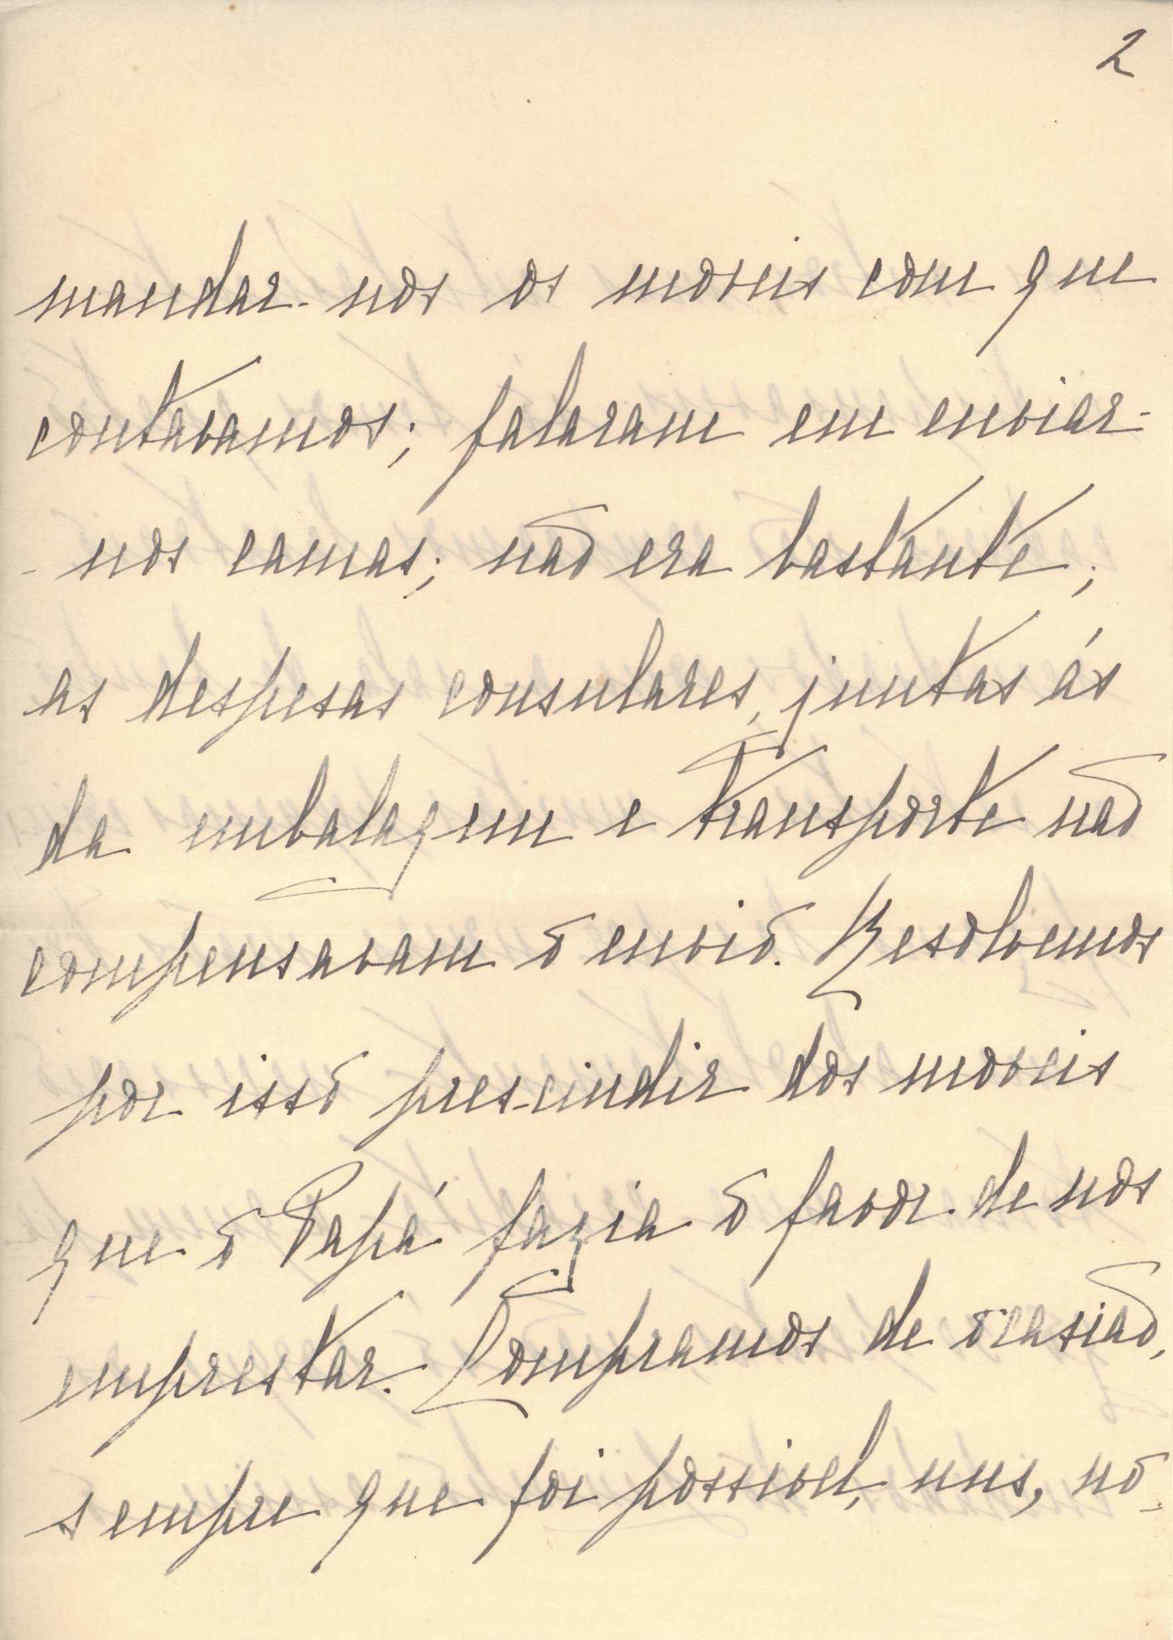 2
mandar-nos os moveis com que
contavamos; falaram em enviar-
-nos camas; não era bastante;
as despesas consulares, juntas ás
da embalagem e transporte não
compensavam o envio. Resolvemos
por isso prescindir dos moveis
que o Papá fazia o favor de nos
emprestar. Compramos de ocasião,
sempre que foi possivel, uns, no-